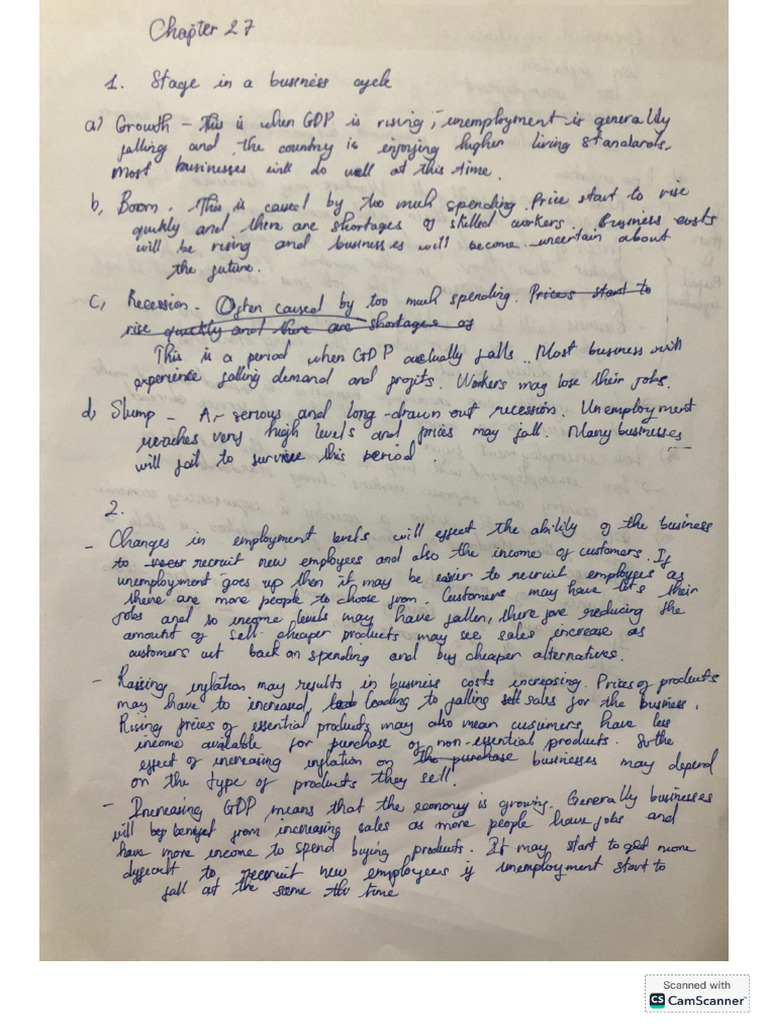 Chapter 27
1. Stage in a business cycle
a) Growth - This is when GDP is rising, unemployment is generally
falling and the country is enjoying higher living standards.
Most businesses will do well at this time.
b, Boom. This is caused by too much spending. Price start to rise
quickly and there are shortages of skilled workers. Business costs
will be rising and businesses will become uncertain about
the future.
c, Recession. Often caused by too much spending. Prices start to
rise quickly and there are shortages of
This is a period when GDP actually falls. Most business will
experience falling demand and profits. Workers may lose their jobs.
d, Slump - A serious and long-drawn out recession. Unemployment
reaches very high levels and prices may fall. Many businesses
will fail to survive this period.
2.
- Changes in employment levels will effect the ability of the business
to recruit new employees and also the income of customers. If
unemployment goes up then it may be easier to recruit employees as
there are more people to choose from. Customers may have their
jobs and so income levels may have fallen, therefore reducing the
amount of sell. cheaper products may see sales increase as
customers cut back on spending and buy cheaper alternatives.
- Raising inflation may results in business costs increasing. Prices of products
may have to increased, leading to falling sales for the business.
Rising prices of essential products may also mean customers have less
income available for purchase of non-essential products. So the
effect of increasing inflation on the purchase businesses may depend
on the type of products they sell.
- Increasing GDP means that the economy is growing. Generally businesses
will benefit from increasing sales as more people have jobs and
have more income to spend buying products. It may start to get more
difficult to recruit new employees if unemployment start to
fall at the same time
Scanned with
CS CamScanner